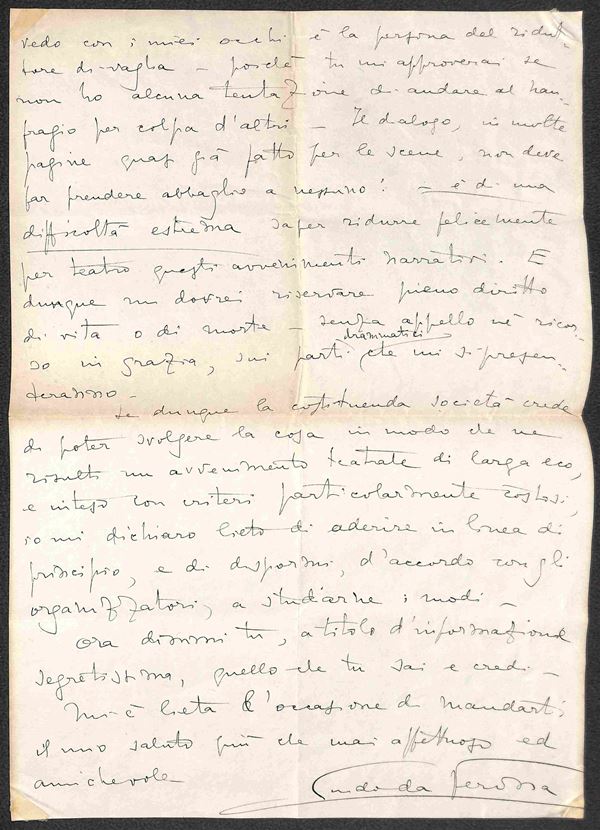 vedo con i miei occhi è la persona del ridut-
tore di vaglia - poiché tu mi approverai se
non ho alcuna tentazione di andare al nau-
fragio per colpa d'altri - Il dialogo, in molte
pagine quasi già fatto per le scene, non deve
far prendere abbaglio a nessuno! - è di una
difficoltà estrema saper ridurre felicemente
per teatro questi avvenimenti narrativi. E
dunque mi dovrei riservare pieno diritto
di vita o di morte - senza appello nè ricor-
so in grazia, sui parti drammatici che mi si presen-
teranno -
Se dunque la costituenda società crede
di poter svolgere la cosa in modo che ne
risulti un avvenimento teatrale di larga eco,
e inteso con criteri particolarmente costosi,
io mi dichiaro lieto di aderire in linea di
principio, e di dispormi, d'accordo con gli
organizzatori, a studiarne i modi -
Ora dimmi tu, a titolo d'informazione
segretissima, quello che tu sai e credi -
Mi è lieta l'occasione di mandarti
il mio saluto più che mai affettuoso ed
amichevole
Guido da Verona